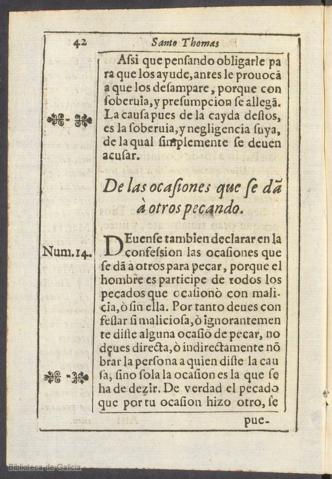 42
Santo Thomas
Assi que pensando obligarle pa
ra que los ayude, antes le prouocã
a que los desampare, porque con
soberuia, y presumpcion se allegã.
La causa pues de la cayda destos,
es la soberuia, y negligencia suya,
de la qual simplemente se deuen
acusar.
De las ocasiones que se dã
à otros pecando.
Num. 14.
DEuense tambien declarar en la
confession las ocasiones que
se dã à otros para pecar, porque el
hombre es participe de todos los
pecados que ocasionò con mali-
cia, ò sin ella. Por tanto deues con
fessar si maliciosa, ò ignorantemen
te diste alguna ocasiõ de pecar, no
deues directa, ò indirectamente nõ
brar la persona a quien diste la cau
sa, sino sola la ocasion es la que se
ha de dezir. De verdad el pecado
que por tu ocasion hizo otro, se
pue-
Biblioteca de Galicia